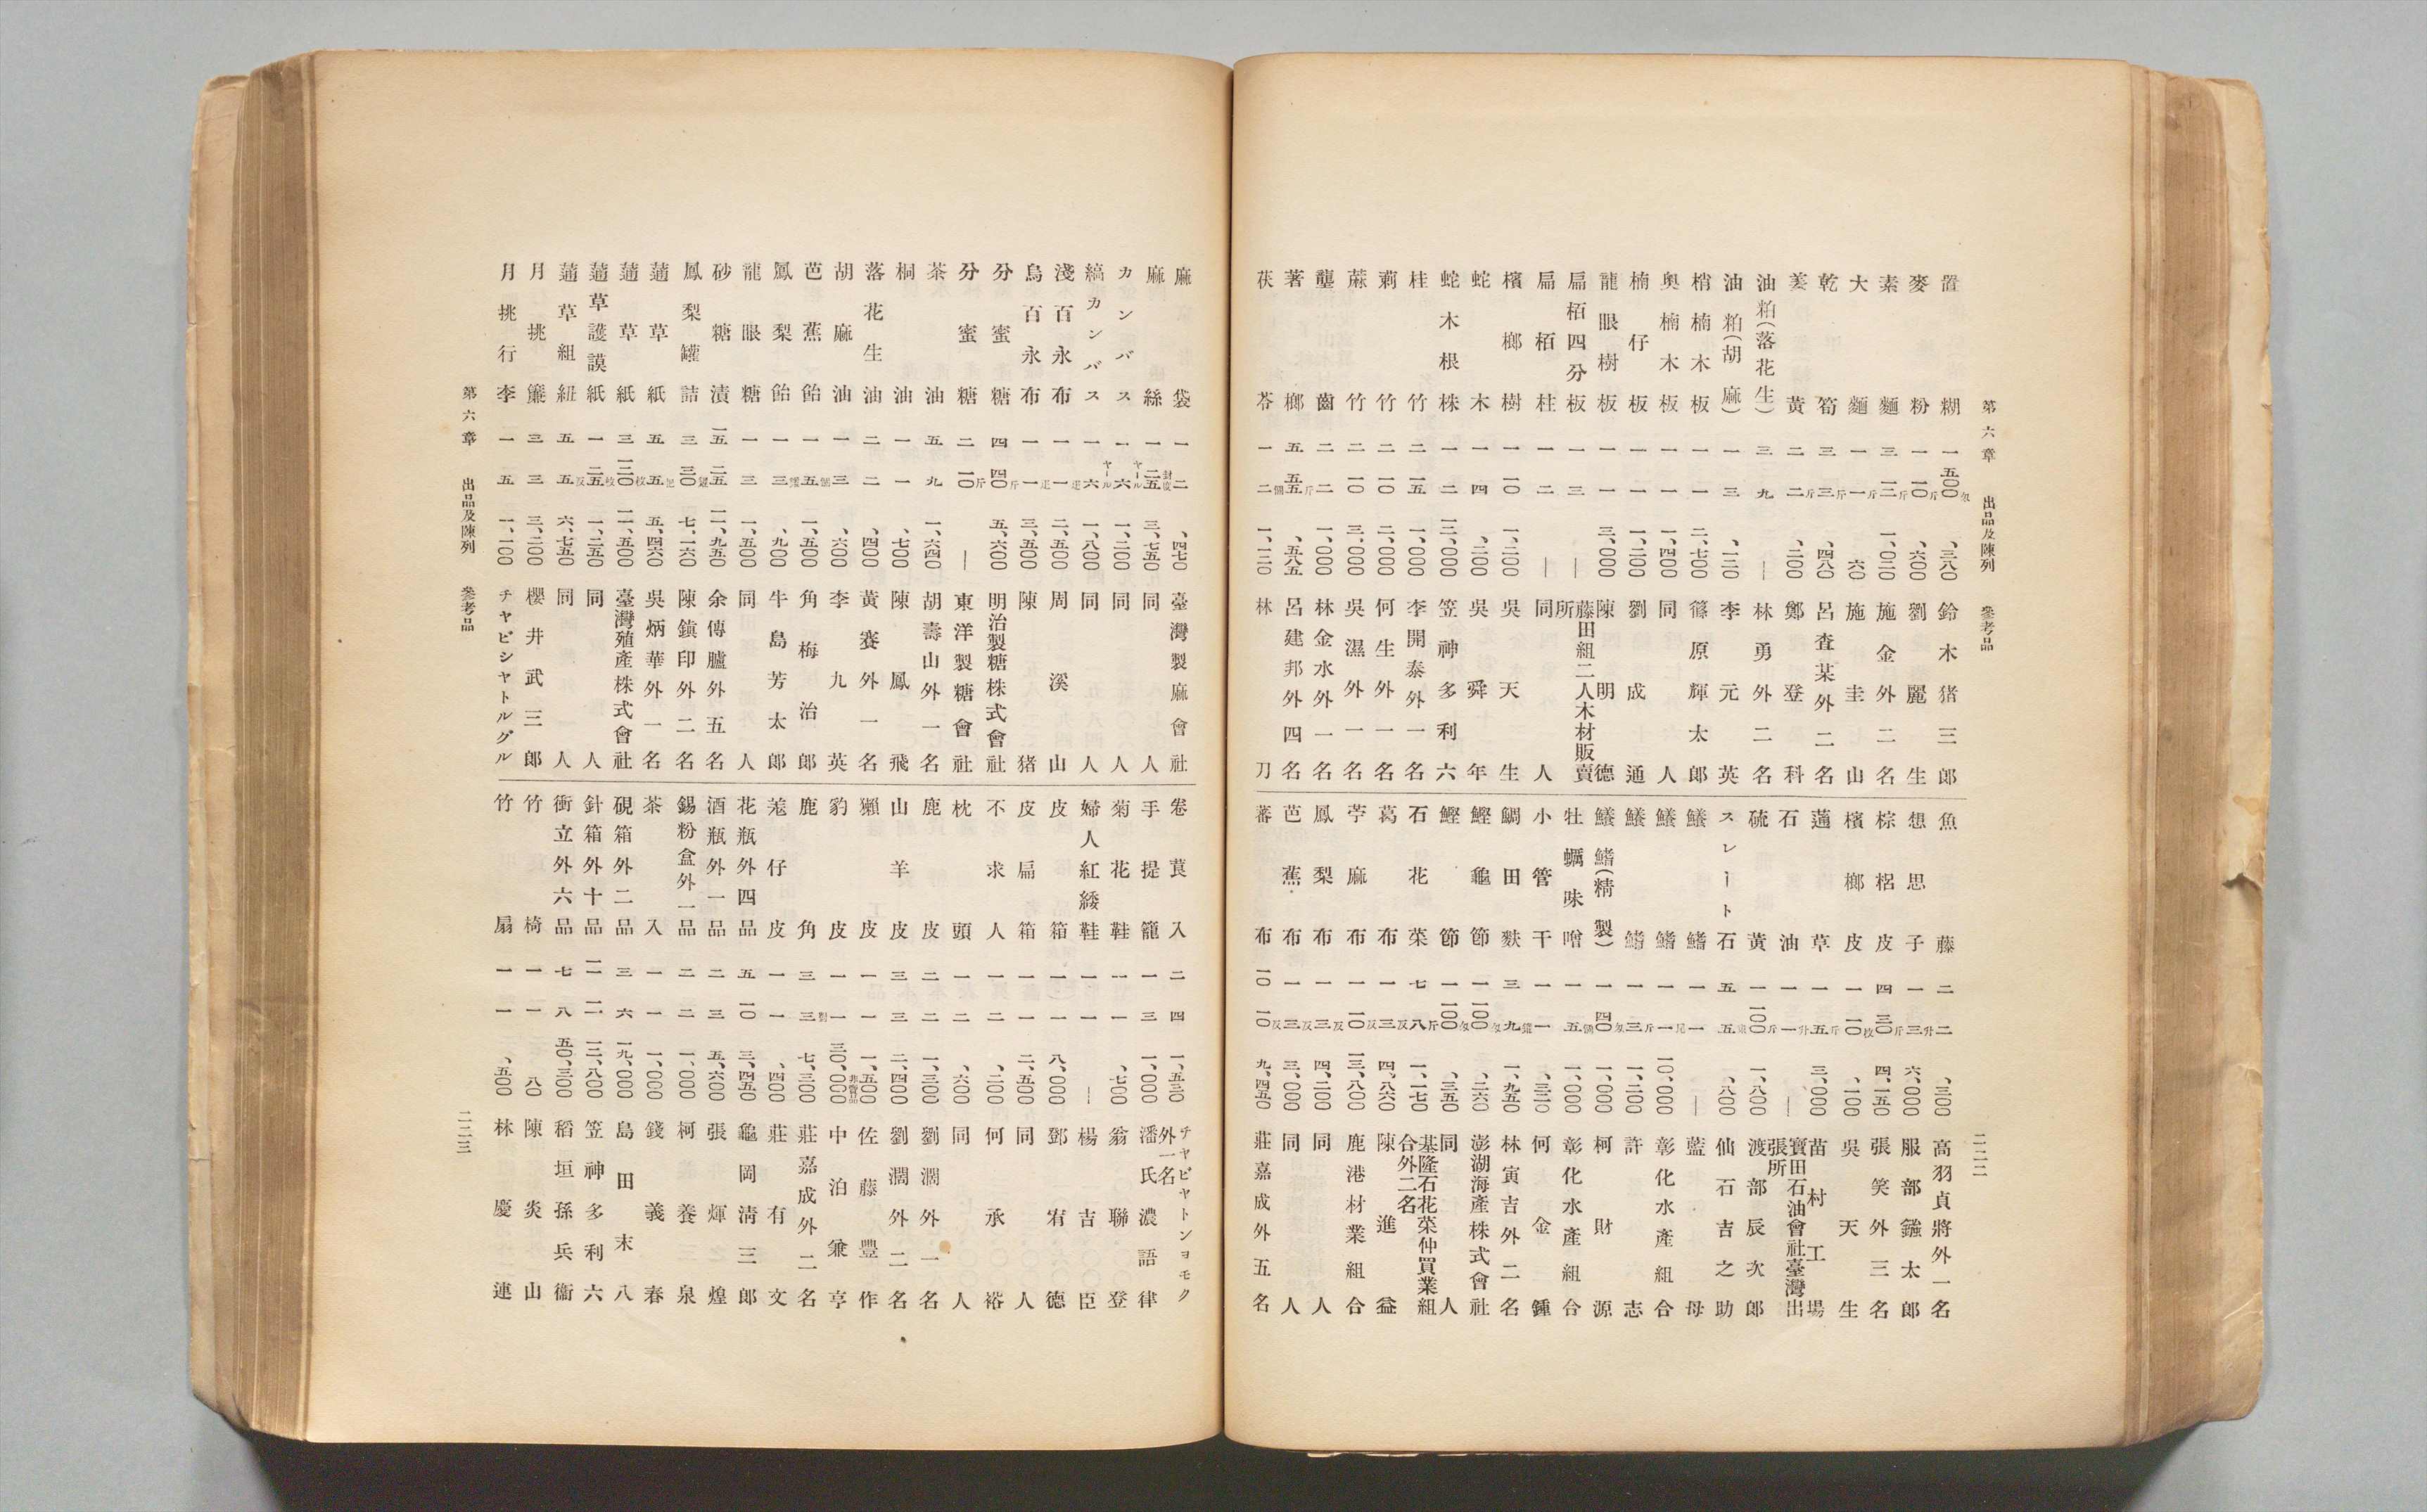 第六章 出品及陳列 參考品 二二二
置糊 一 五〇〇匁 、三八〇 鈴木猪三郎
麥粉 一 一〇斤 、六〇〇 劉麗生
素麵 三 一二斤 一、〇二〇 施金外二名
大麵 一 一斤 六〇 施圭山
乾筍 三 三斤 、四八〇 呂査某外二名
姜黃 二 二斤 、二〇〇 鄭登科
油粕(落花生) 三 九 ― 林勇外二名
油粕(胡麻) 一 三 、一二〇 李元英
梢楠木板 一 一 二、七〇〇 篠原輝太郎
奧楠木板 一 一 一、四〇〇 同人
楠仔板 一 一 一、二〇〇 劉成通
龍眼樹板 一 一 三、〇〇〇 陳明德
扁栢四分板 一 三 ― 藤田組二人木材販賣所
扁栢柱 一 二 ― 同人
檳榔樹 一 一〇 一、二〇〇 吳天生
蛇木 一 四 、二〇〇 吳舜年
蛇木根株 一 二 一二、〇〇〇 笠神多利六
桂竹 二 一五 一、〇〇〇 李開泰外一名
莿竹 二 一〇 二、〇〇〇 何生外一名
蔴竹 二 一〇 三、〇〇〇 吳濕外一名
龔齒 二 二 一、〇〇〇 林金水外一名
著榔 五 五五斤 、五八五 呂建邦外四名
茯苓 一 二個 一、一二〇 林刀
魚藤 二 二 、三〇〇 高羽貞將外一名
想思子 一 三升 六、〇〇〇 服部鏹太郎
棕梠皮 四 三〇斤 四、一五〇 張笑外三名
檳榔皮 一 一〇枚 、一〇〇 吳天生
蓪草 一 五斤 三、〇〇〇 苗村工場
石油 一 一升 ― 寶田石油會社臺灣出張所
硫黃 一 一〇〇斤 一、八〇〇 渡部辰次郎
スレート石 五 五 、八〇〇 仙石吉之助
鱶鰭 一 一 ― 藍母
鱶鰭 一 一尾 一〇、〇〇〇 彰化水產組合
鱶鰭 一 三斤 一、二〇〇 許志
鱶鰭(精製) 一 四〇匁 一、〇〇〇 柯財源
牡蠣味噌 一 五 一、〇〇〇 彰化水產組合
小管干 一 一 、三二〇 何金鍾
鯛田麩 三 九罐 一、九五〇 林寅吉外二名
鰹龜節 一 一〇〇匁 、二六〇 澎湖海產株式會社
鰹節 一 一〇〇匁 、三五〇 同人
石花菜 七 八斤 一、一七〇 基隆石花菜仲買業組合外二名
葛布 一 三反 四、八六〇 陳進益
苧麻布 一 一〇反 一三、八〇〇 鹿港材業組合
鳳梨布 一 三反 四、二〇〇 同人
芭蕉布 一 三反 三、〇〇〇 同人
蕃布 一〇 一〇 九、四五〇 莊嘉成外五名
麻袋 一 二 、四七〇 臺灣製麻會社
麻絲 一 二五 三、七五〇 同人
カンバス 一 六ヤール 一、二〇〇 同人
縞カンバス 一 六ヤール 一、八〇〇 同人
淺百永布 一 一疋 二、五〇〇 周溪山
烏百永布 一 一疋 三、五〇〇 陳猪
分蜜糖 四 四〇斤 五、六〇〇 明治製糖株式會社
分蜜糖 二 一〇斤 ― 東洋製糖會社
茶油 五 九 一、六四〇 胡壽山外一名
桐油 一 一 、七〇〇 陳鳳飛
落花生油 二 二 、四〇〇 黃賽外一名
胡麻油 一 三 、六〇〇 李九英
芭蕉飴 一 五個 一、五〇〇 角梅治郎
鳳梨飴 一 三罐 、九〇〇 牛島芳太郎
龍眼糖 一 三 一、五〇〇 同人
砂糖漬 一五 二五 一一、九五〇 余傳臚外五名
鳳梨罐詰 三 三〇罐 七、一六〇 陳鎭印外二名
蓪草紙 五 五 五、四六〇 吳炳華外一名
蓪草紙 三 一二〇枚 一一、五〇〇 臺灣殖產株式會社
蓪草護謨紙 一 二五枚 一、二五〇 同人
蓪草組紐 五 五反 六、七五〇 同人
月挑簾 三 三 三、二〇〇 櫻井武三郎
月挑行李 一 五 一、一〇〇 チヤピシヤトルグル
卷莨入 二 四 一、五三〇 チヤピヤトンヨモク外一名
手提籠 一 三 一、〇〇〇 潘氏濃語律
菊花鞋 一 一 、七〇〇 翁聯登
婦人紅緩鞋 一 一 ― 楊吉臣
皮箱 一 一 八、〇〇〇 鄧宥德
皮扁箱 一 一 二、五〇〇 同人
不求人 一 二 、二〇〇 何承裕
枕頭 一 二 、六〇〇 同人
鹿皮 二 二 一、三〇〇 劉濶外一名
山羊皮 三 三 二、四〇〇 劉濶外二名
獺皮 一 一 一、五〇〇 佐藤豐作
豹皮 一 一 三〇、〇〇〇 非賣品 中泊兼亨
鹿角 三 三對 七、三〇〇 莊嘉成外二名
羗仔皮 一 一 、四〇〇 莊有文
花瓶外四品 五 一〇 三、四五〇 龜岡淸三郎
酒瓶外一品 二 三 五、六〇〇 張煇之煌
錫粉盒外一品 二 二 一、〇〇〇 柯養泉
茶入 一 一 一、〇〇〇 錢義春
硯箱外二品 三 六 一九、〇〇〇 島田末八
針箱外十品 一一 一一 一三、八〇〇 笠神多利六
衝立外六品 七 八 五〇、三〇〇 稻垣孫兵衞
竹椅 一 一 八〇 陳炎山
竹扇 一 一 、五〇〇 林慶連
第六章 出品及陳列 參考品 二二三